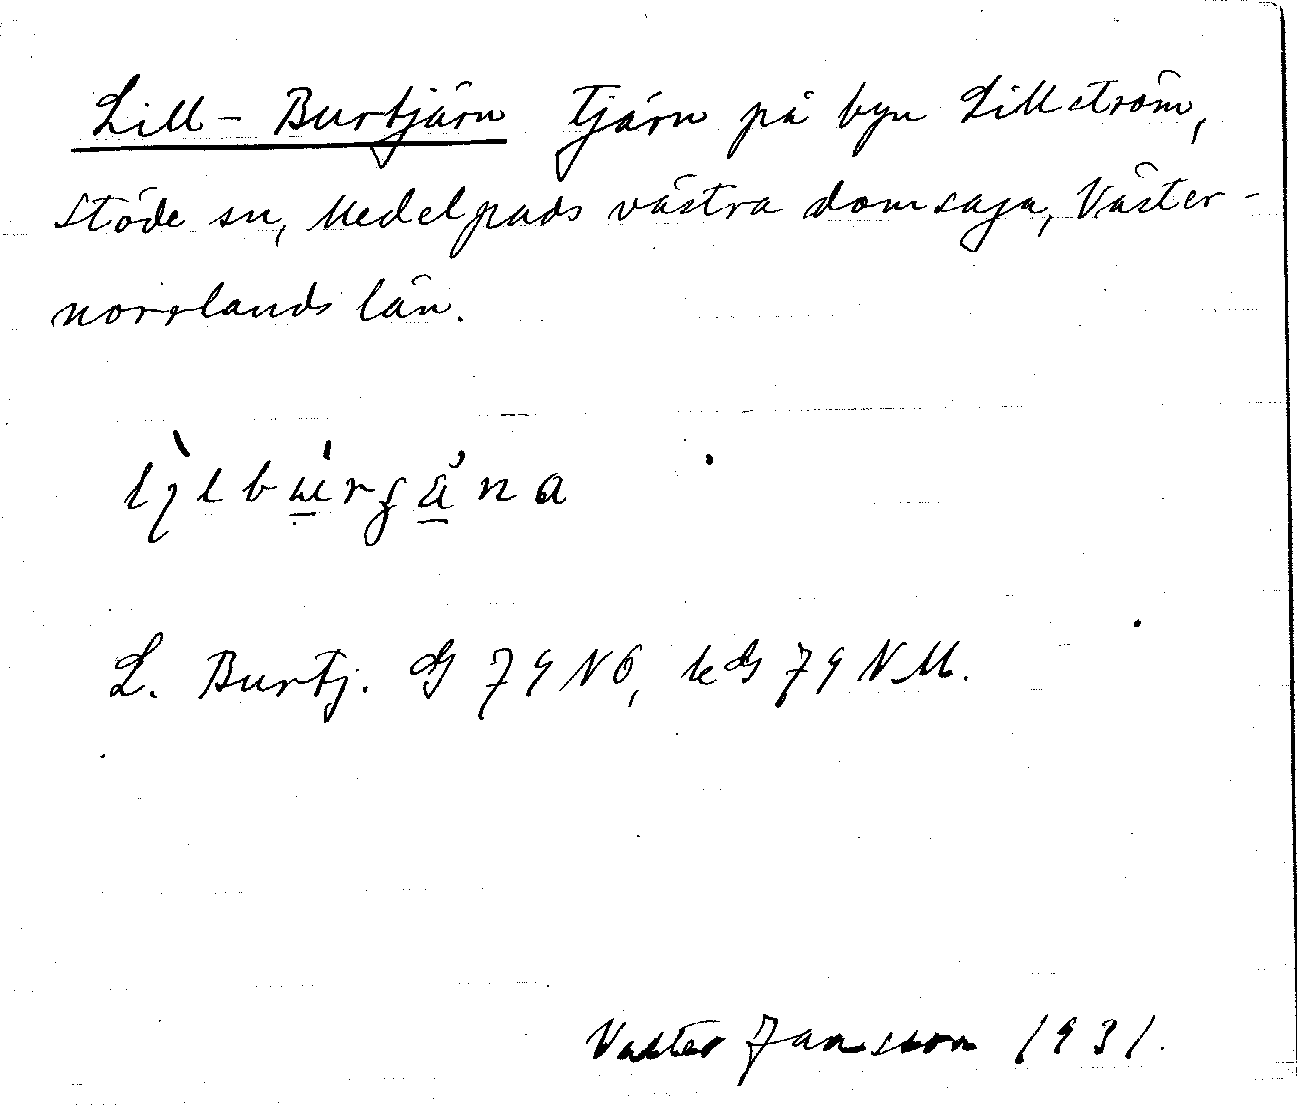 Lill-Burtjärn Tjärn på byn Lillström,
Stöde sn, Medelpads västra domsaga, Väster-
norrlands län.
L. Burtj. dG 79 NO, ledG 79 NM.
Valter Jansson 1931.